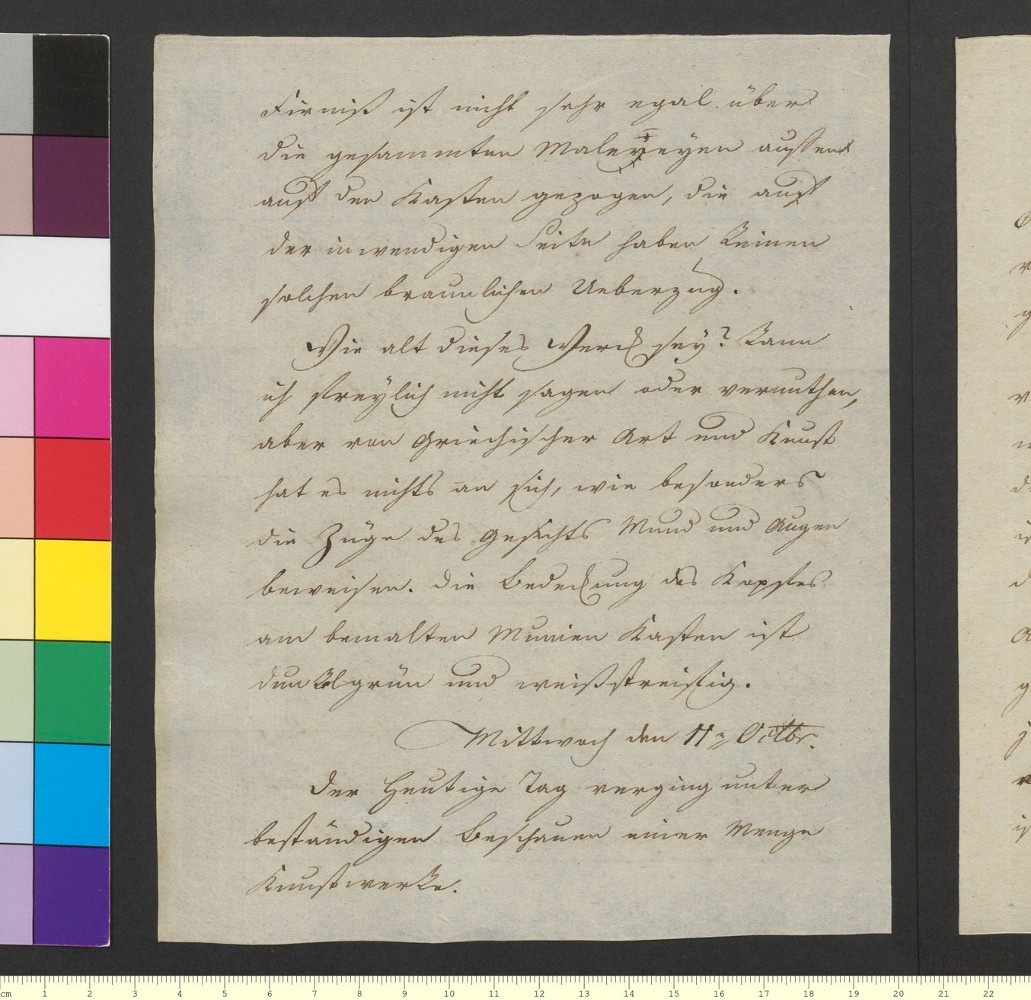 Firniß ist nicht sehr egal über
die gesammten Malereyen aussen
auf den Kasten gezogen, die auf
der inwendigen Seite haben keinen
solchen braunlichen Ueberzug.
Wie alt dieses Werck sey? kann
ich freylich nicht sagen oder vermuthen,
aber von Griechischer Art und Kunst
hat es nichts an sich, wie besonders
die Züge des Gesichts Mund und Augen
beweisen. die Bedeckung des Kopfes
am bemalten Mumien Kasten ist
dunkelgrün und weißstreifig.
Mittwoch den 11n Octbr.
Der heutige Tag verging unter
beständigen Beschauen einer Menge
Kunstwerke.
cm 1 2 3 4 5 6 7 8 9 10 11 12 13 14 15 16 17 18 19 20 21 22